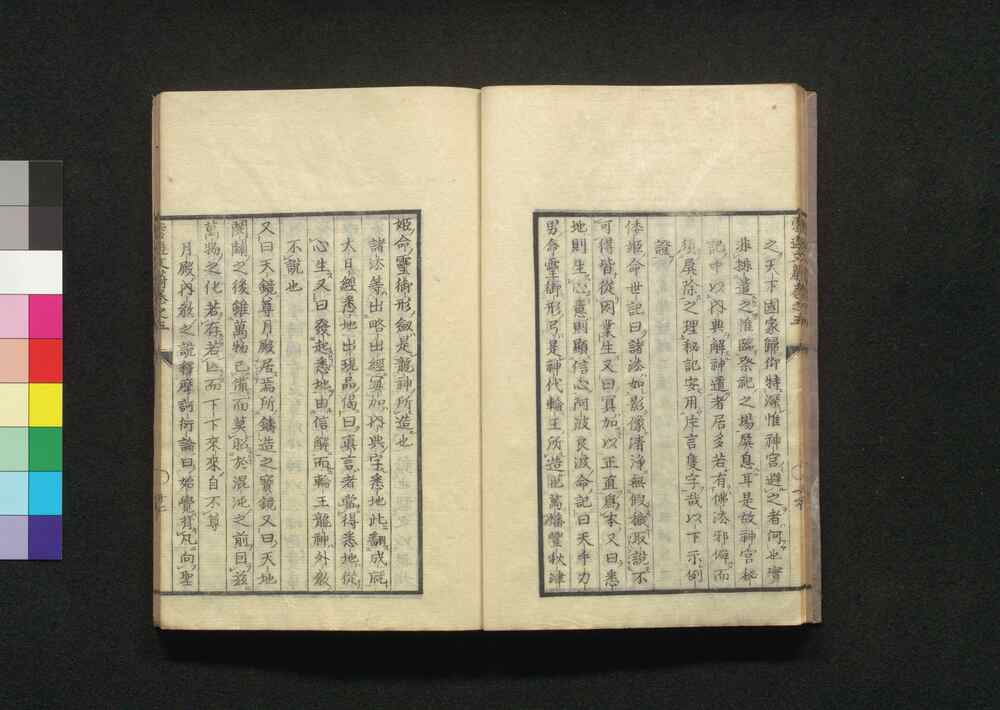 之天下國家歸術特深惟神宮避之者何也實
非排遣之唯臨祭祀之場屏息耳是故神宮秘
記中以內典解神道者居多若有佛法邪僻而
屏除之理秘記安用片言隻字哉以下示例
證
倭姬命世記曰諸法如影像清淨無假穢取說不
可得皆從因業生又曰冥加以正直為本又曰悉
地則生心意則顯信心阿波良波命記曰天手力
男命靈御形弓是神代輪王所造也萬幡豐秋津
姬命靈御形劔是龍神所造也
諸法等出略出經冥加內典字悉地此翻成就
大日經悉地出現品偈曰眞言者當得悉地從
心生又曰發起悉地由信解而輪王龍神外教
不說也
又曰天鏡尊月殿居焉所鑄造之寶鏡又曰天地
開闢之後雖萬物已備而莫照於混沌之前因茲
萬物之化若存若亡而下下來來自不尊
月殿內教之說釋摩訶衍論曰始覺背凡向聖